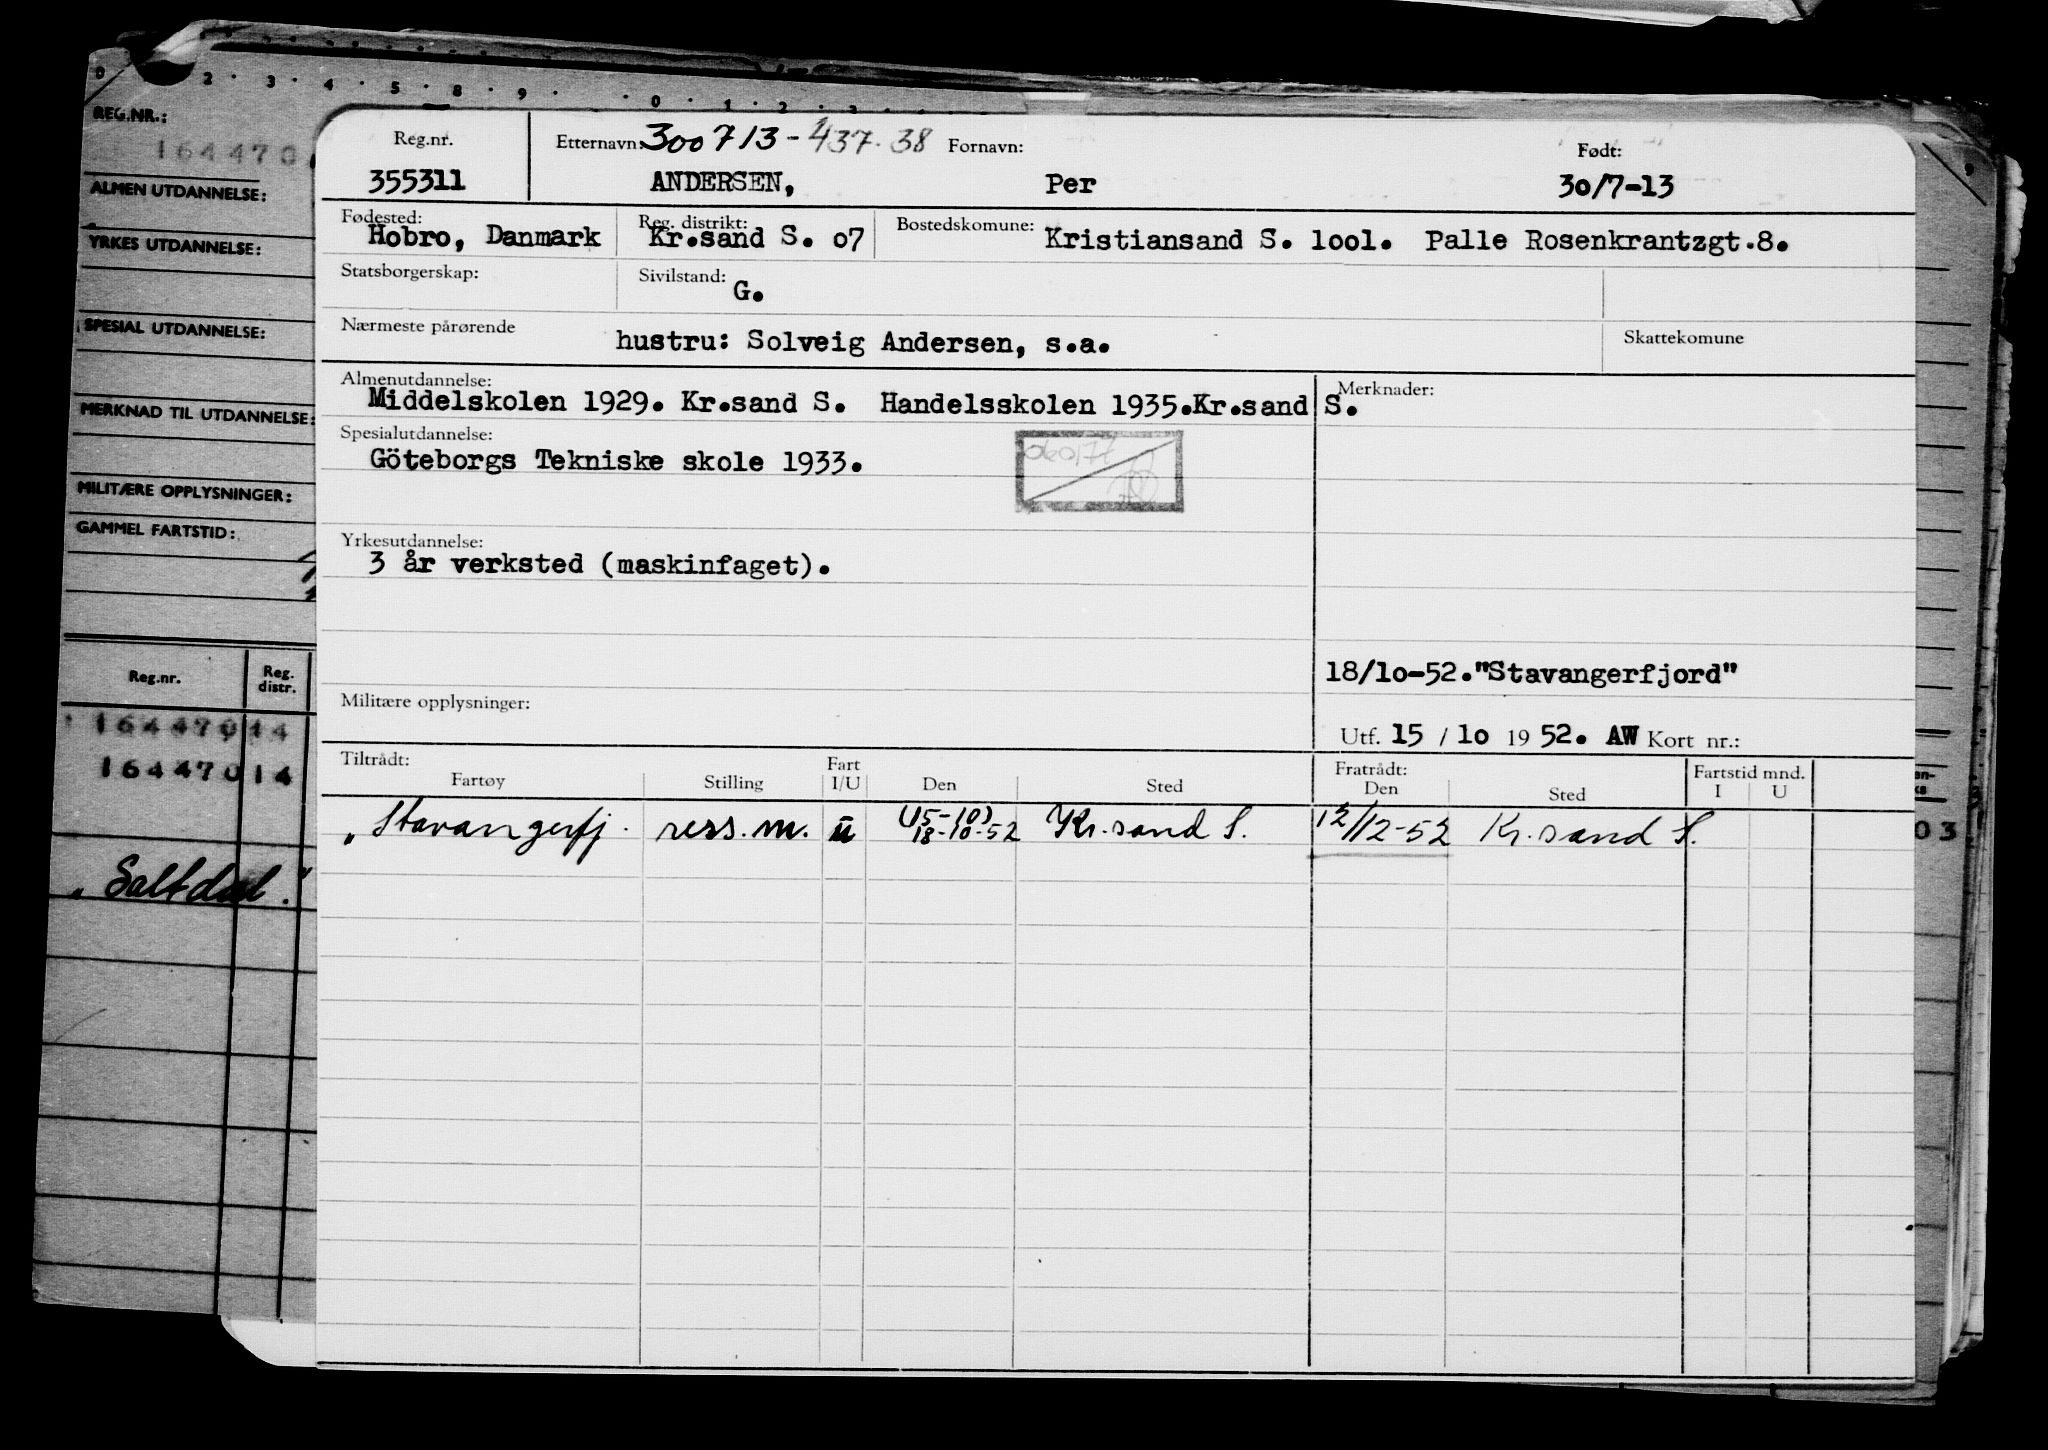 0 2 · 3 · 4 · 5 · 8 · 9 · · 0 · 1 · 2 · 3
REG.NR.:
164470
ALMEN UTDANNELSE:
YRKES UTDANNELSE:
SPESIAL UTDANNELSE:
MERKNAD TIL UTDANNELSE:
MILITÆRE OPPLYSNINGER:
GAMMEL FARTSTID:
Reg.nr. Reg. distr.
164470 14
164470 14
"Saltdal."
9
03
Reg.nr. Etternavn: 300713-437.38 Fornavn: Født:
355311 ANDERSEN, Per 30/7-13
Fødested: Reg. distrikt: Bostedskomune:
Hobro, Danmark Kr.sand S. o7 Kristiansand S. lool. Palle Rosenkrantzgt.8.
Statsborgerskap: Sivilstand: G.
Nærmeste pårørende hustru: Solveig Andersen, s.a. Skattekomune
Almenutdannelse: Merknader:
Middelskolen 1929. Kr.sand S. Handelsskolen 1935.Kr.sand S.
Spesialutdannelse:
Göteborgs Tekniske skole 1933.
Yrkesutdannelse:
3 år verksted (maskinfaget).
18/lo-52."Stavangerfjord"
Militære opplysninger:
Utf. 15 / lo 19 52. AW Kort nr.:
Tiltrådt: Fratrådt: Fartstid mnd.
Fartøy Stilling Fart I/U Den Sted Den Sted I U
"Stavangerfj. ress.m. U (15-10) 18-10-52 Kr.sand S. 12/12-52 Kr.sand S.